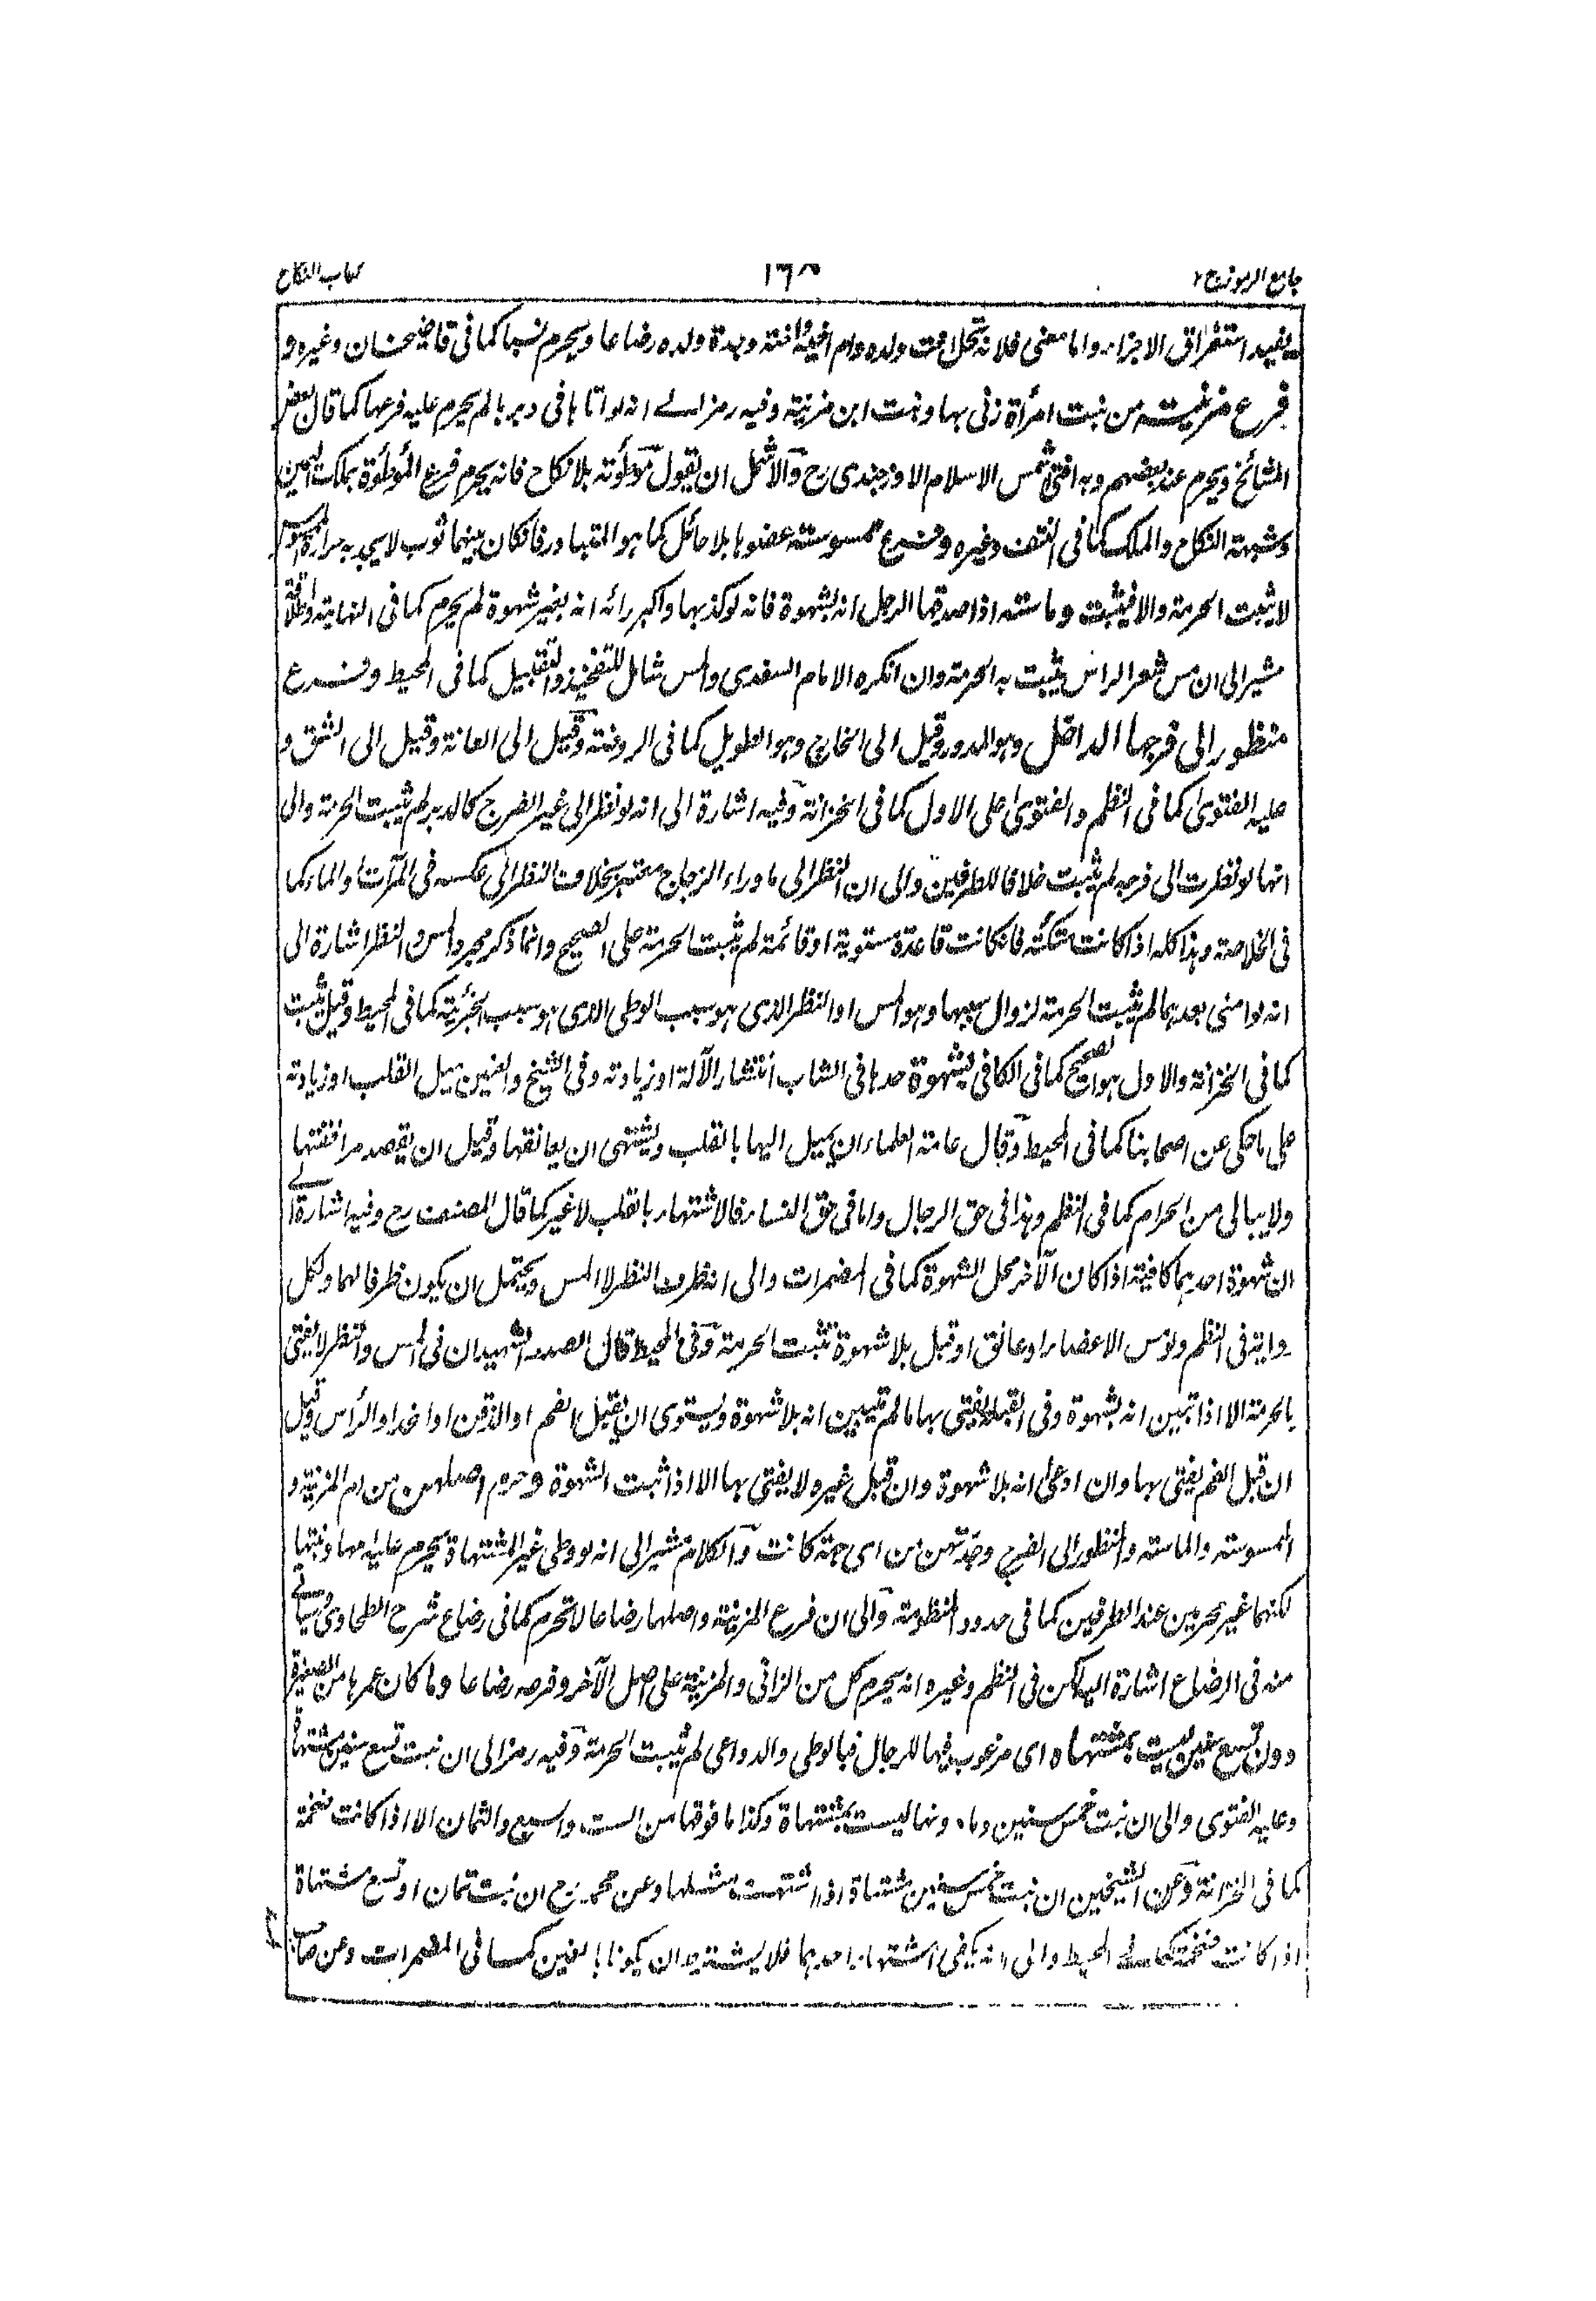 جامع الرموز ج ٢
١٦٥
كتاب النكاح
يفيد استغراق الاجزاء واما معنى فلانه تحل اخت ولده وام اخيه واخته وجدة ولده رضاعا ويحرم نسبا كما في قاضيخان وغيره و
فرع مزنيته من بنت امرأة زنى بها وبنت ابن مزنيته وفيه رمز الى انه لو اتاها في دبرها لم يحرم عليه فرعها كما قال بعض
المشائخ ويحرم عند بعضهم وبه افتى شمس الاسلام الاوزجندى رح والاشمل ان يقول موطوءته بلا نكاح فانه يحرم فرع الموطوءة بملك اليمين
وشبهة النكاح والملك كما في النتف وغيره وفرع ممسوسته عضوها بلا حائل كما هو المتبادر فان كان بينهما ثوب لا يجد به حرارة الممسوس
لا تثبت الحرمة والا فيثبت وماسته اذا صدقها الرجل انه بشهوة فانه لو كذبها واكبر رأيه انه بغير شهوة لم يحرم كما في النهاية واطلاقه
مشير الى ان مس شعر الراس يثبت به الحرمة وان انكره الامام السغدى والمس شامل للتفخيذ والتقبيل كما في المحيط وفرع
منظور الى فرجها الداخل وهو المدور وقيل الى الخارج وهو الطويل كما في الروضة وقيل الى العانة وقيل الى الشق و
عليه الفتوى كما في النظم والفتوى على الاول كما في الخزانة وفيه اشارة الى انه لو نظر الى غير الفرج كالدبر لم يثبت الحرمة والى
انها لو نظرت الى فرجه لم يثبت خلافا للطرفين والى ان النظر الى ما وراء الزجاج معتبر بخلاف النظر الى عكسه في المرآت والماء كما
في الخلاصة وهذا كله اذا كانت متكئة فان كانت قاعدة مستوية او قائمة لم يثبت الحرمة على الصحيح وانما ذكر مجرد المس والنظر اشارة الى
انه لو امنى بعدهما لم يثبت الحرمة لزوال سببها وهو المس او النظر الذى هو سبب الوطى الذى هو سبب الجزئية كما في المحيط وقيل يثبت
كما في الخزانة والاول هو الصحيح كما في الكافي بشهوة حدها في الشاب انتشار الآلة او زيادته وفي الشيخ والعنين ميل القلب او زيادته
على ما حكى عن اصحابنا كما في المحيط وقال عامة العلماء ان يميل اليها بالقلب ويشتهى ان يعانقها وقيل ان يقصد مواقعتها
ولا يبالى من الحرام كما في النظم وهذا في حق الرجال واما في حق النساء فالاشتهاء بالقلب لا غير كما قال المصنف رح وفيه اشارة الى
ان شهوة احدهما كافية اذا كان الآخر محل الشهوة كما في المضمرات والى انه ظرف النظر لا المس ويحتمل ان يكون ظرفا لهما ولكل
رواية في النظم ولو مس الاعضاء او عانق او قبل بلا شهوة تثبت الحرمة وفي المحيط قال الصدر الشهيد ان في المس والنظر لا يفتى
بالحرمة الا اذا تبين انه بشهوة وفي القبلة يفتى بها ما لم يتبين انه بلا شهوة ويستوى ان يقبل الفم او الذقن او الخد او الرأس وقيل
ان قبل الفم يفتى بها وان ادعى انه بلا شهوة وان قبل غيره لا يفتى بها الا اذا ثبت الشهوة وحرم اصلهن من ام المزنية و
الممسوسة والماسة والمنظور الى الفرج وجدتهن من اى جهة كانت والكلام مشير الى انه لو وطى غير المشتهاة يحرم عليه امها وبنتها
لكنهما غير محرمين عند الطرفين كما في حدود المنظومة والى ان فرع المزنية واصلها رضاعا لا تحرم كما في رضاع شرح الطحاوى وسيأتى
منه في الرضاع اشارة اليه لكن في النظم وغيره انه يحرم كل من الزانى والمزنية على اصل الآخر وفرعه رضاعا وما كان عمرها من الصغيرة
دون تسع سنين ليست بمشتهاة اى مرغوب فيها للرجال فبالوطى والدواعى لم يثبت الحرمة وفيه رمز الى ان بنت تسع سنين مشتهاة
وعليه الفتوى والى ان بنت خمس سنين وما دونها ليست بمشتهاة وكذا ما فوقها من الست والسبع والثمان الا اذا كانت ضخمة
كما في الخزانة وعن الشيخين ان بنت خمس سنين مشتهاة اذا اشتهت مثلها وعن محمد رح ان بنت ثمان او تسع مشتهاة
اذا كانت ضخمة كما في المحيط والى انه يكفى اشتهاء احدهما فلا يشترط ان يكونا بالغين كما في المضمرات وعن